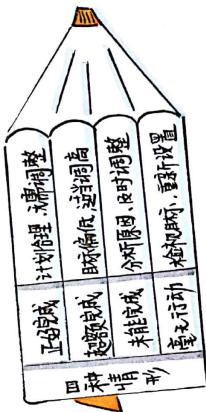 四种情形
正常完成 计划合理,无需调整
超额完成 目标偏低,适当调高
未能完成 分析原因,及时调整
毫无行动 检视目标,重新设置